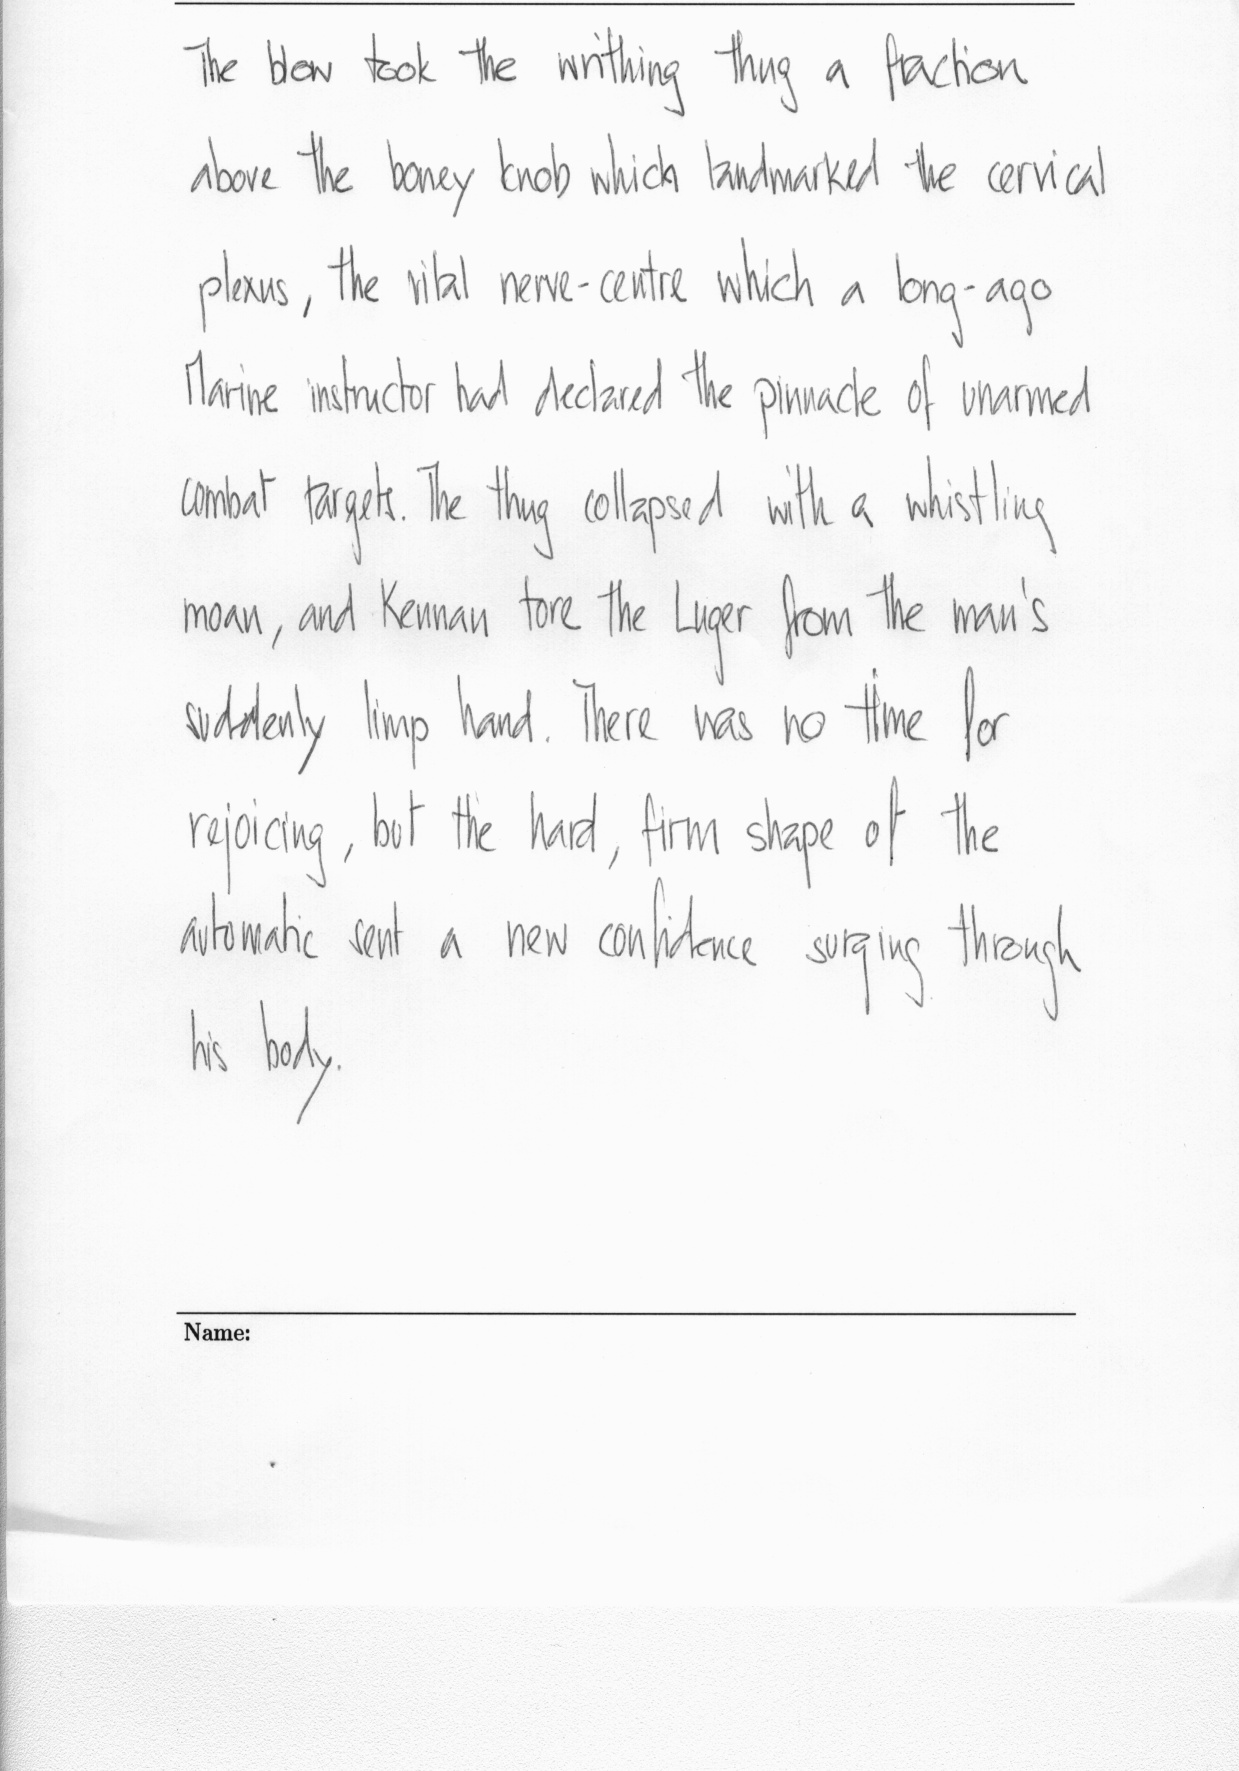 The blow took the writhing thug a fraction
above the boney knob which landmarked the cervical
plexus, the vital nerve-centre which a long-ago
Marine instructor had declared the pinnacle of unarmed
combat targets. The thug collapsed with a whistling
moan, and Kennan tore the Luger from the man's
suddenly limp hand. There was no time for
rejoicing, but the hard, firm shape of the
automatic sent a new confidence surging through
his body.
Name: